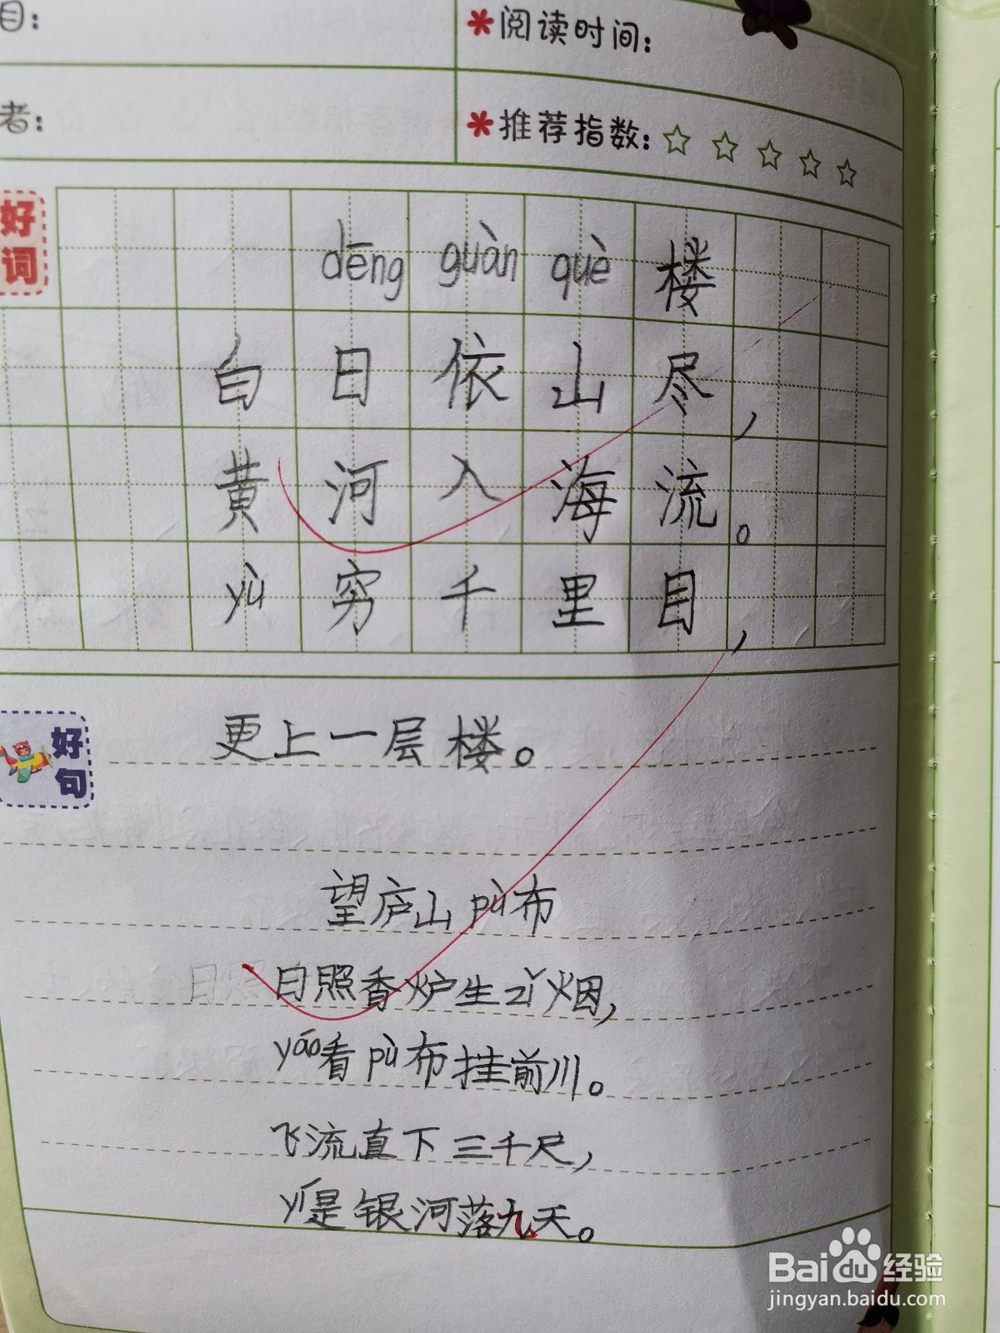 目:
*阅读时间:
者:
*推荐指数:☆☆☆☆☆
好词
dēng guàn què 楼
白日依山尽,
黄河入海流。
yù穷千里目,
好句
更上一层楼。
望庐山pù布
日照香炉生zǐ烟,
yáo看pù布挂前川。
飞流直下三千尺,
yí是银河落九天。
Baidu经验
jingyan.baidu.com